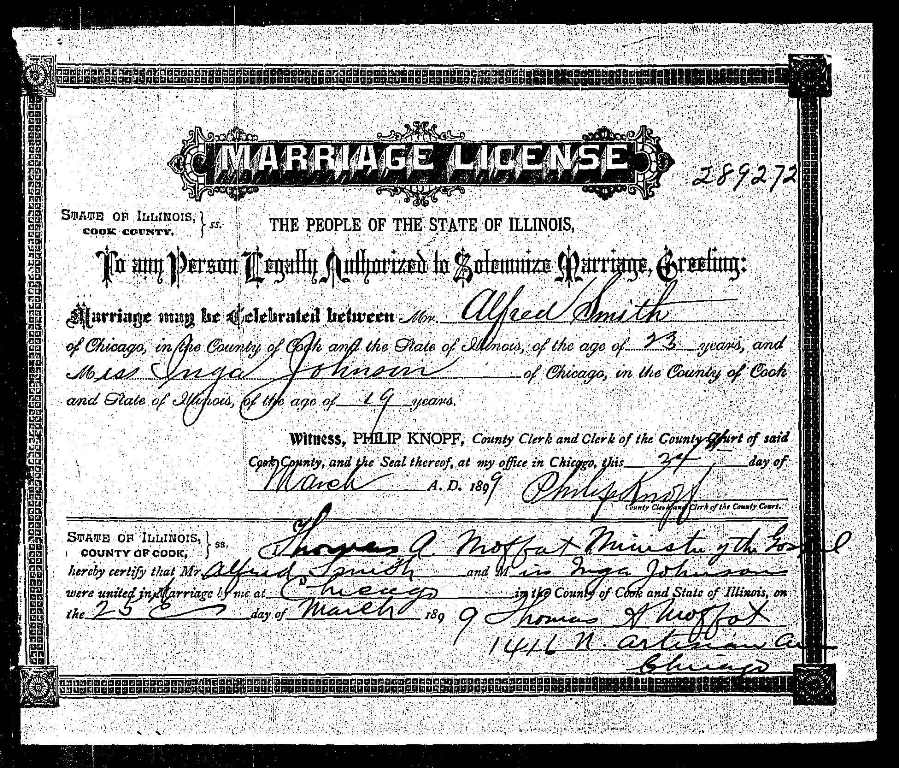 MARRIAGE LICENSE
289272
STATE OF ILLINOIS, } ss.
COOK COUNTY,
THE PEOPLE OF THE STATE OF ILLINOIS,
To any Person Legally Authorized to Solemnize Marriage, Greeting:
Marriage may be Celebrated between Mr. Alfred Smith
of Chicago, in the County of Cook and the State of Illinois, of the age of 23 years, and
Miss Inga Johnson of Chicago, in the County of Cook
and State of Illinois, of the age of 19 years.
Witness, PHILIP KNOPF, County Clerk and Clerk of the County Court of said
Cook County, and the Seal thereof, at my office in Chicago, this 24 day of
March A. D. 1899 Philip Knopf
County Clerk and Clerk of the County Court.
STATE OF ILLINOIS, } ss.
COUNTY OF COOK,
Thomas A Moffat Minister of the Gospel
hereby certify that Mr. Alfred Smith and Miss Inga Johnson
were united in Marriage by me at Chicago in the County of Cook and State of Illinois, on
the 25 day of March 1899 Thomas A Moffat
1416 N. Artesian Ave
Chicago